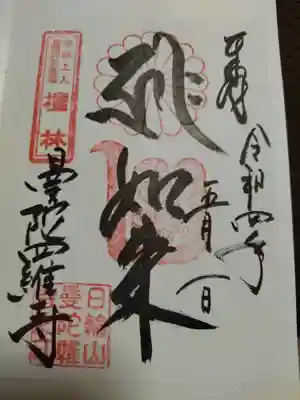 奉拝
令和四年
五月
日
如来
上人
檀林
曼陀羅寺
日輪山
曼陀羅